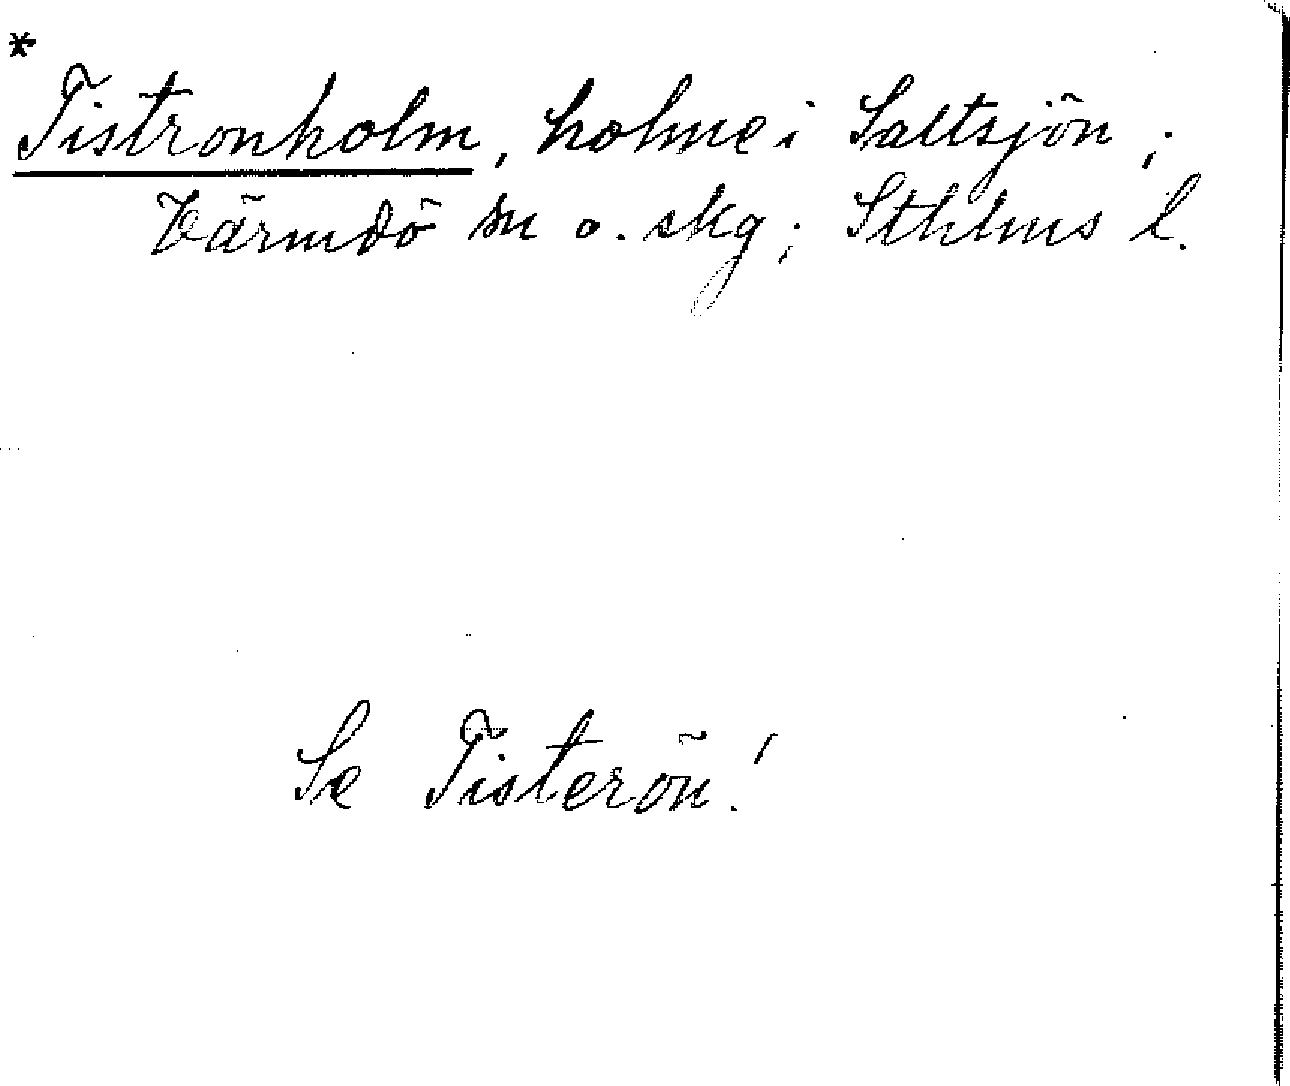 *
Tistronholm, holme i Saltsjön;
Värmdö sn o. skg; Sthlms l.
Se Tisterön!